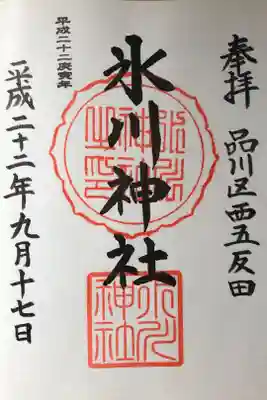 奉拝
品川区西五反田
氷川神社
平成二十二庚寅年
平成二十二年九月十七日
氷川神社